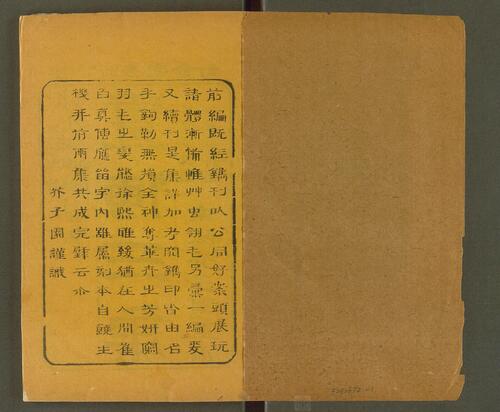 前編既經鐫刊以公同好案頭展玩
諸體漸備惟艸虫翎毛另彙一編爰
又續刊是集詳加考閱鐫印皆由名
手鉤勒無損全神奪華卉之芳妍闢
羽毛之變態徐熙唯緩猶在人間崔
白真傳應留宇內雖屬刻本自饒生
後并前兩集共成完璧云尒
芥子園謹識